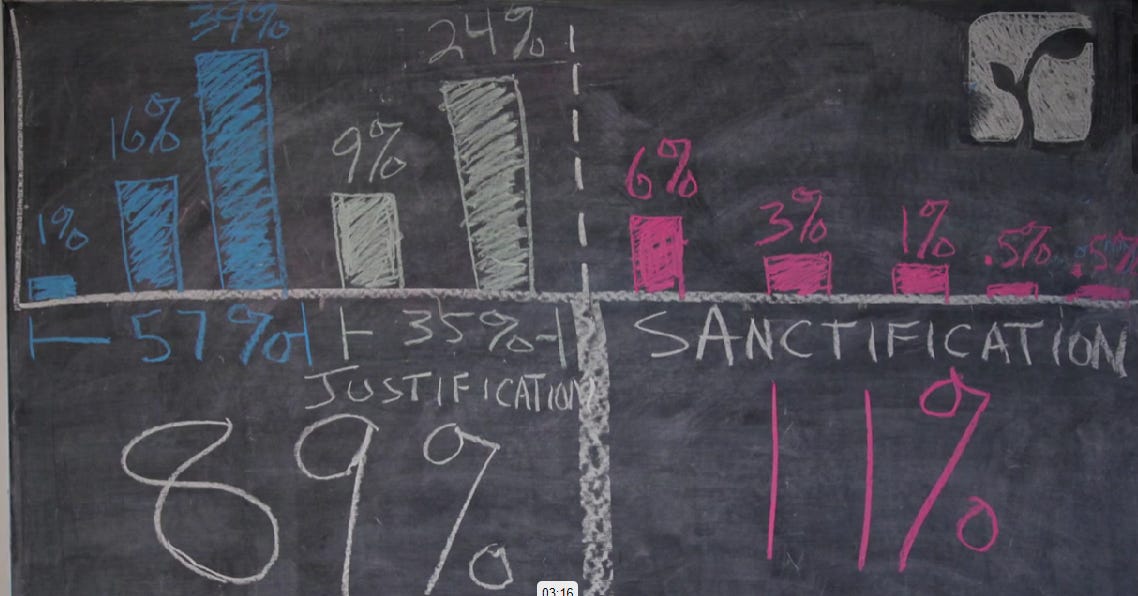 39%
24%
16%
9%
6%
3%
1%
1%
.5%
.5%
57% 35% SANCTIFICATION
JUSTIFICATION
89% 11%
03:16